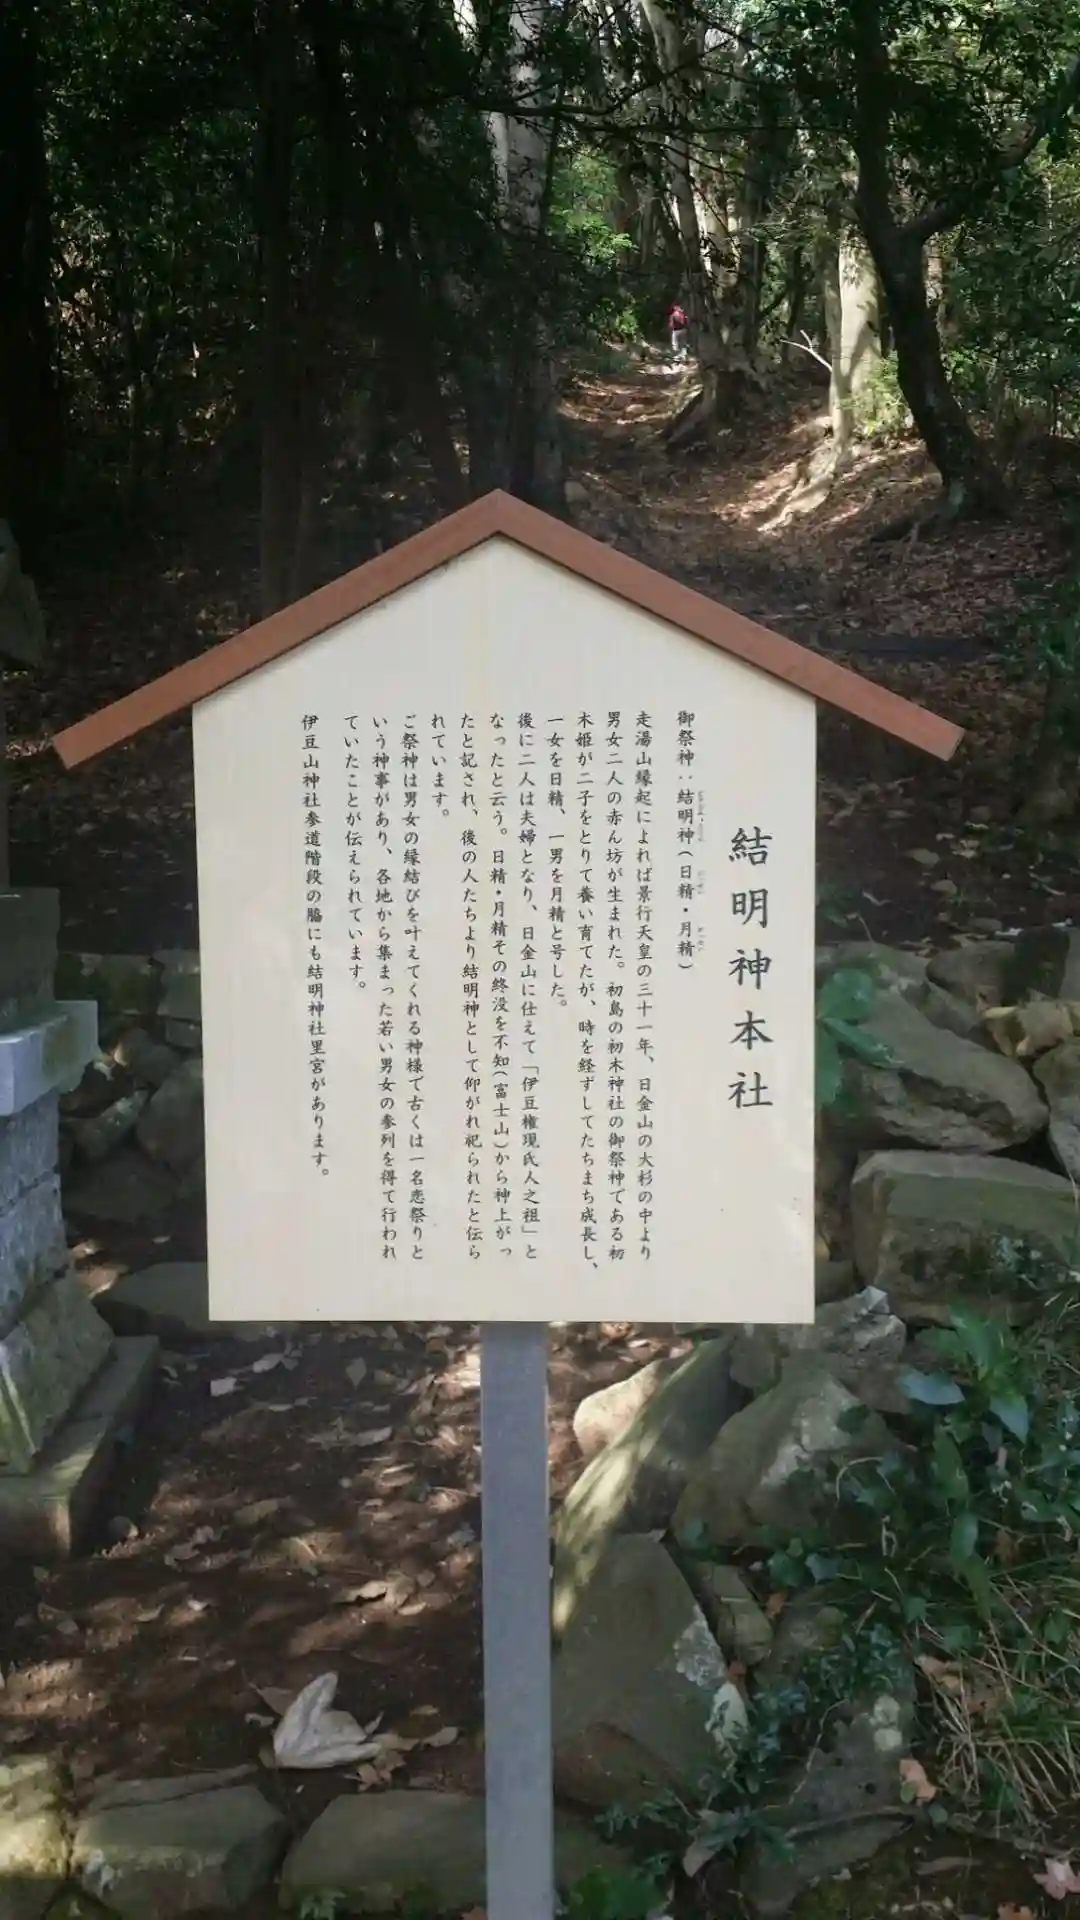 結明神本社
御祭神：結明神（日精・月精）
走湯山縁起によれば景行天皇の三十一年、日金山の大杉の中より
男女二人の赤ん坊が生まれた。初島の初木神社の御祭神である初
木姫が二子をとりて養い育てたが、時を経ずしてたちまち成長し、
一女を日精、一男を月精と号した。
後に二人は夫婦となり、日金山に仕えて「伊豆権現氏人之祖」と
なったと云う。日精・月精その終没を不知（富士山）から神上がっ
たと記され、後の人たちより結明神として仰がれ祀られたと伝ら
れています。
ご祭神は男女の縁結びを叶えてくれる神様で古くは一名恋祭りと
いう神事があり、各地から集まった若い男女の参列を得て行われ
ていたことが伝えられています。
伊豆山神社参道階段の脇にも結明神社里宮があります。